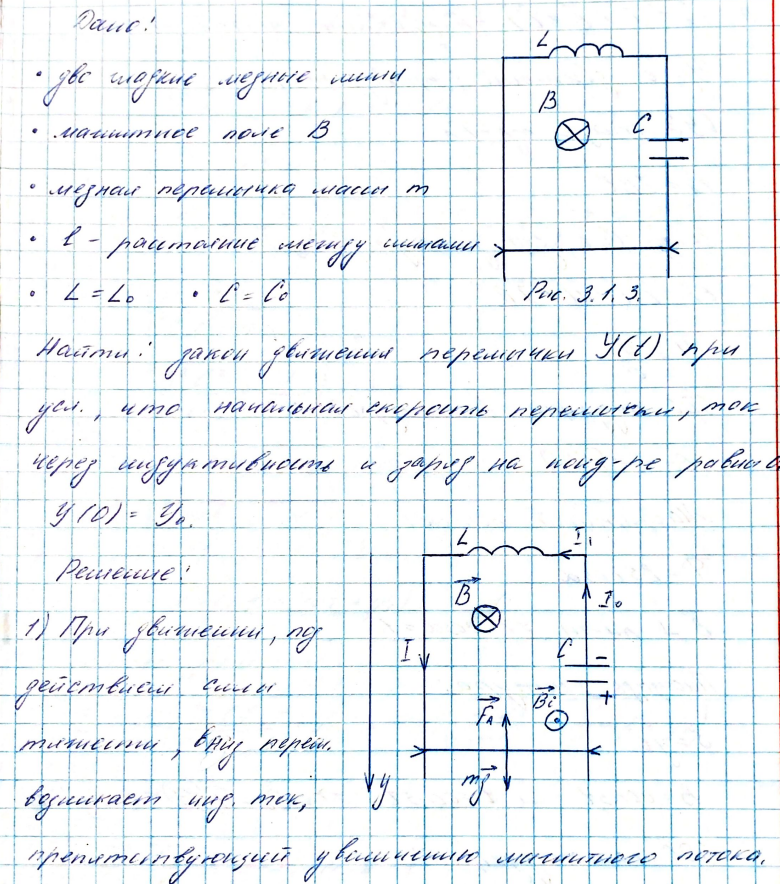 Дано:
L
• две гладкие медные шины
B
• магнитное поле B
C
• медная перемычка массы m
• l - расстояние между шинами
• L = L₀ • C = C₀
Рис. 3.1.3.
Найти: закон движения перемычки Y(t) при
усл., что начальная скорость перемычки, ток
через индуктивность и заряд на конд-ре равна 0.
Y(0) = Y₀.
L I₁
Решение:
B I₀
1) При движении, под
I C -
действием силы
Bi +
Fₐ
тяжести, вниз перем.
mg y
возникает инд. ток,
препятствующий увеличению магнитного потока.